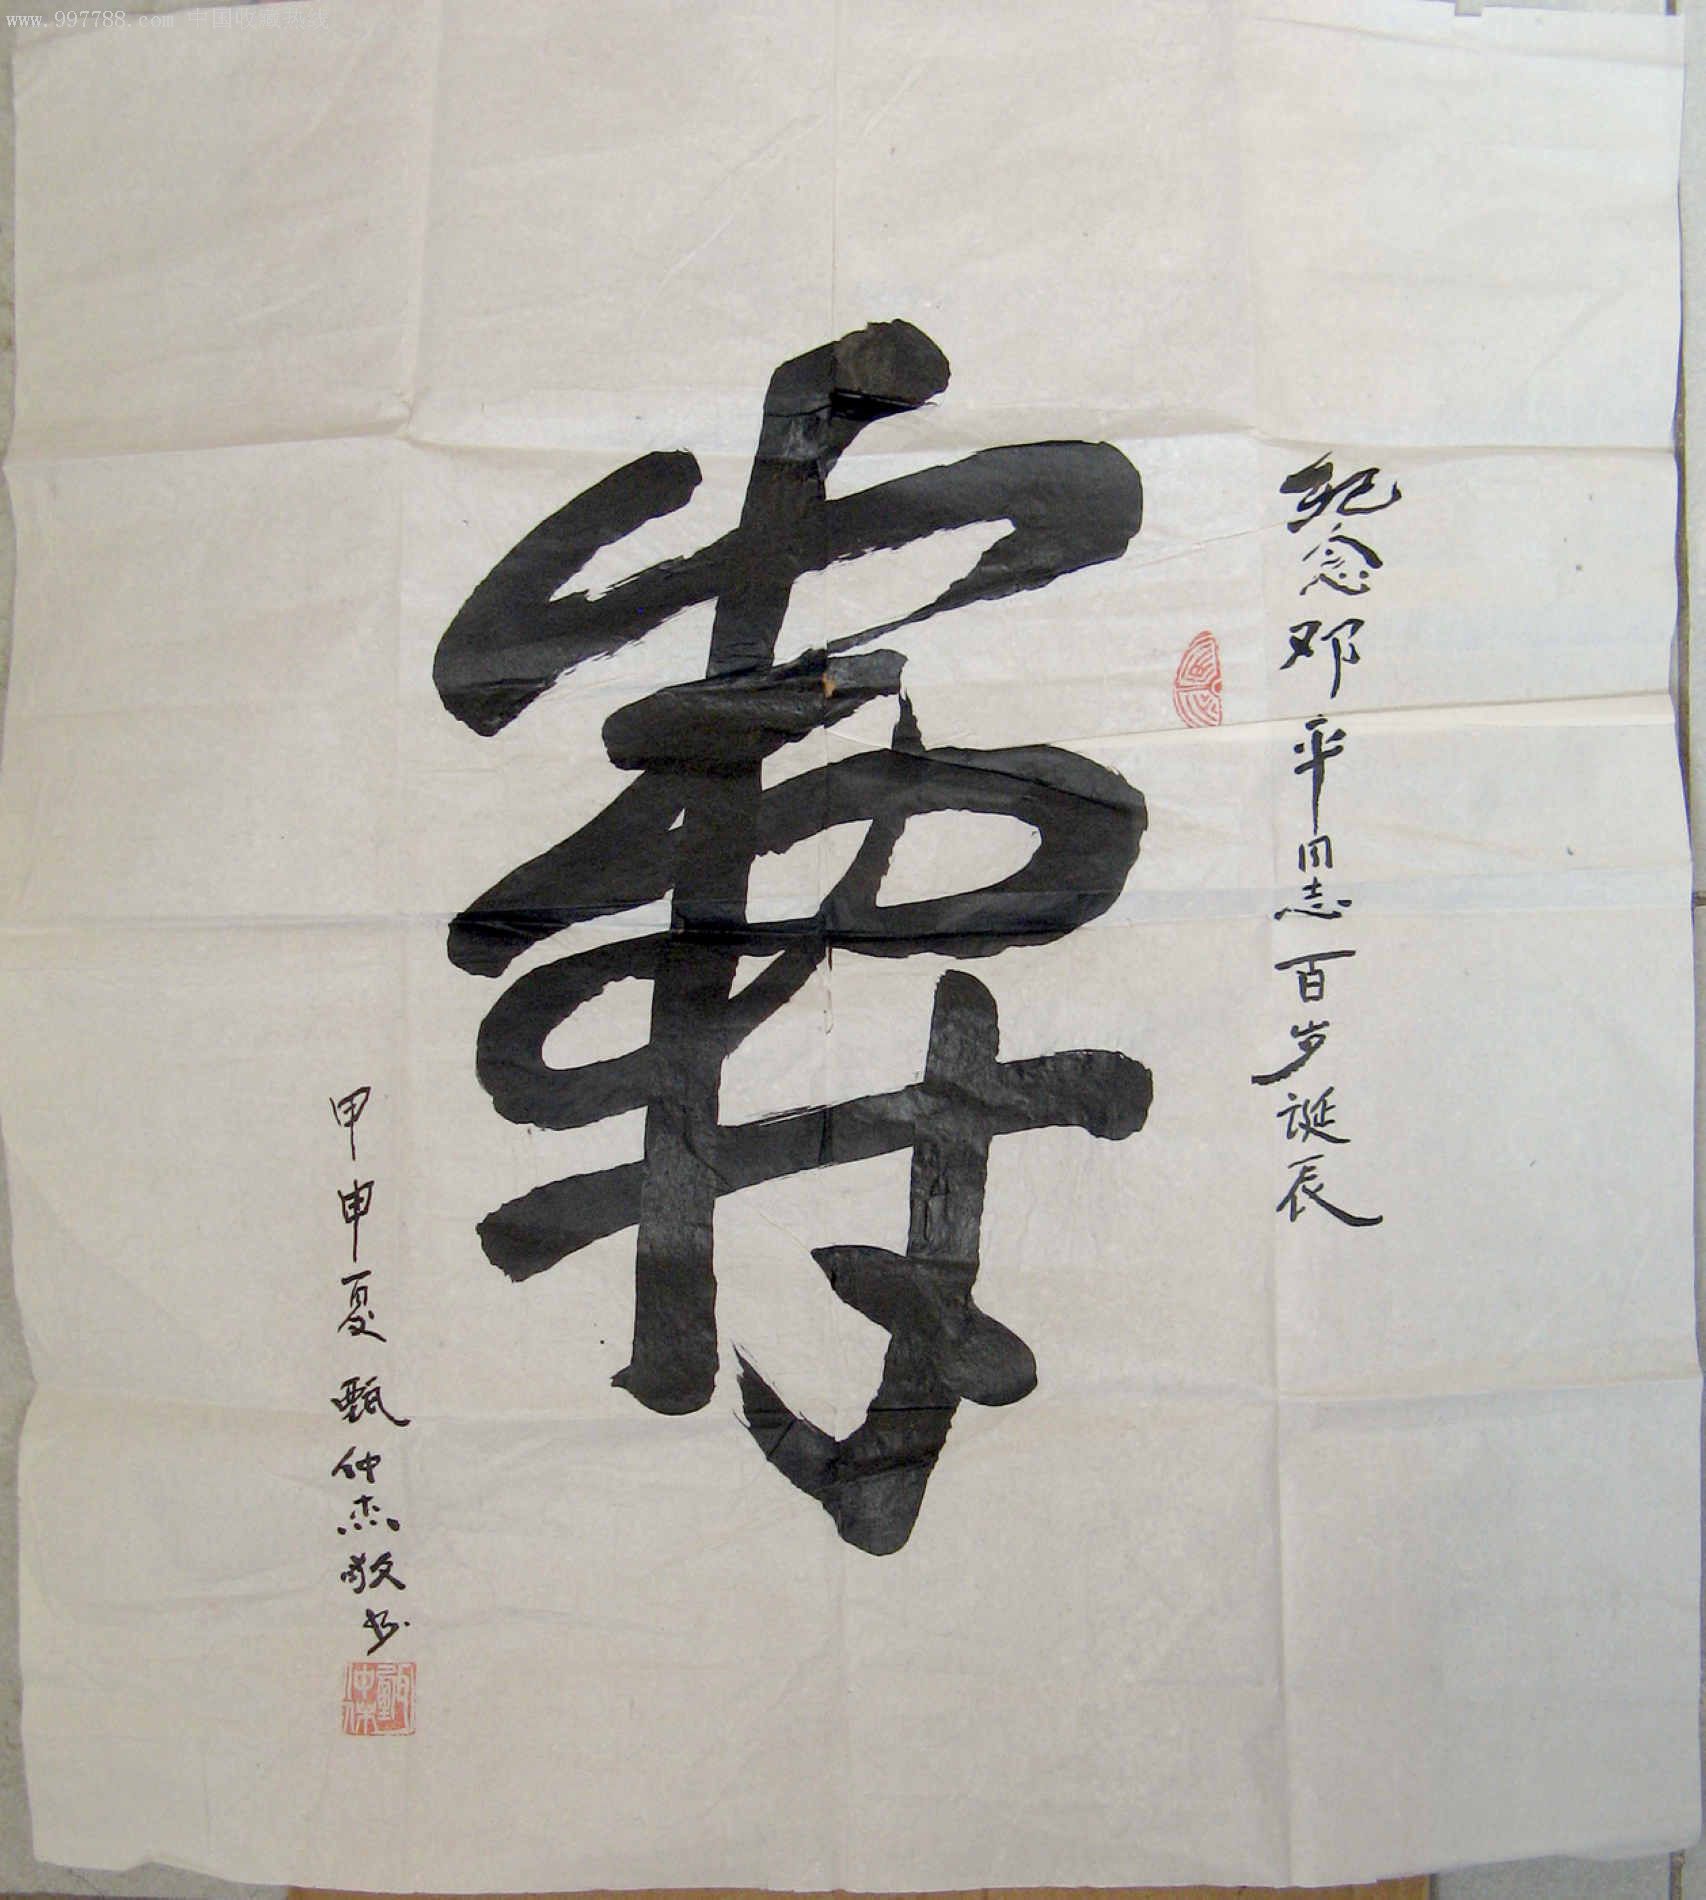 www.997788.com 中国收藏热线
纪念邓平同志百岁诞辰
寿
甲申夏 甄仲杰敬书